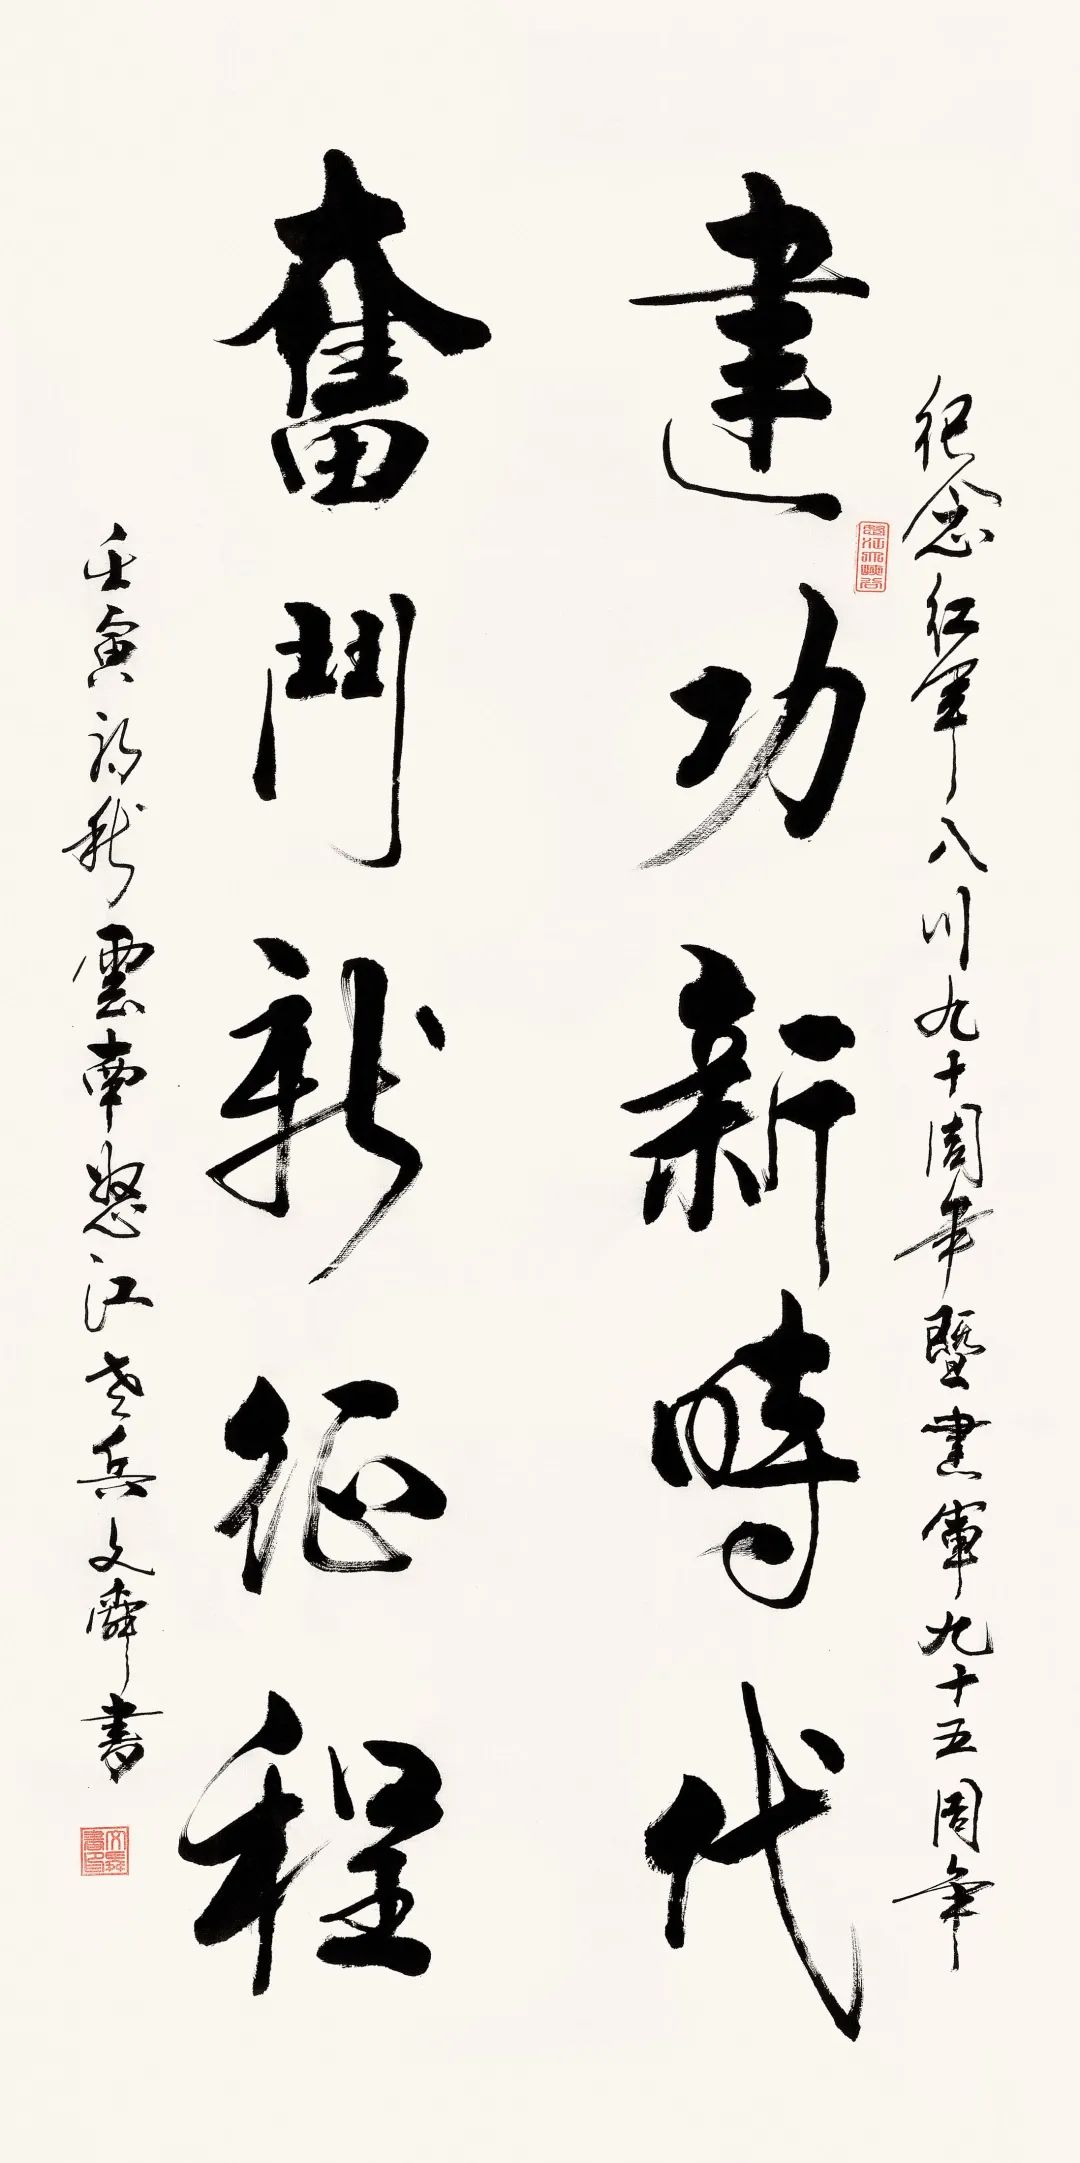 纪念红军入川九十周年暨建軍九十五周年
建功新時代
奮鬥新征程
壬寅初秋雲南怒江老兵文舜書
文舜書印